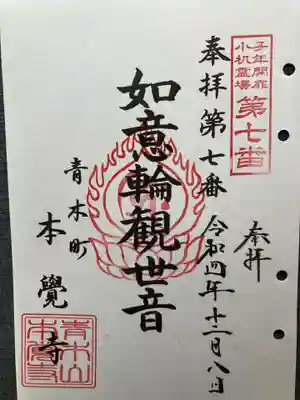 子年開扉
小机霊場
第七番
奉拝
奉拝第七番 令和四年十二月八日
如意輪觀世音
青木町
本覺寺
青木山
本覺寺